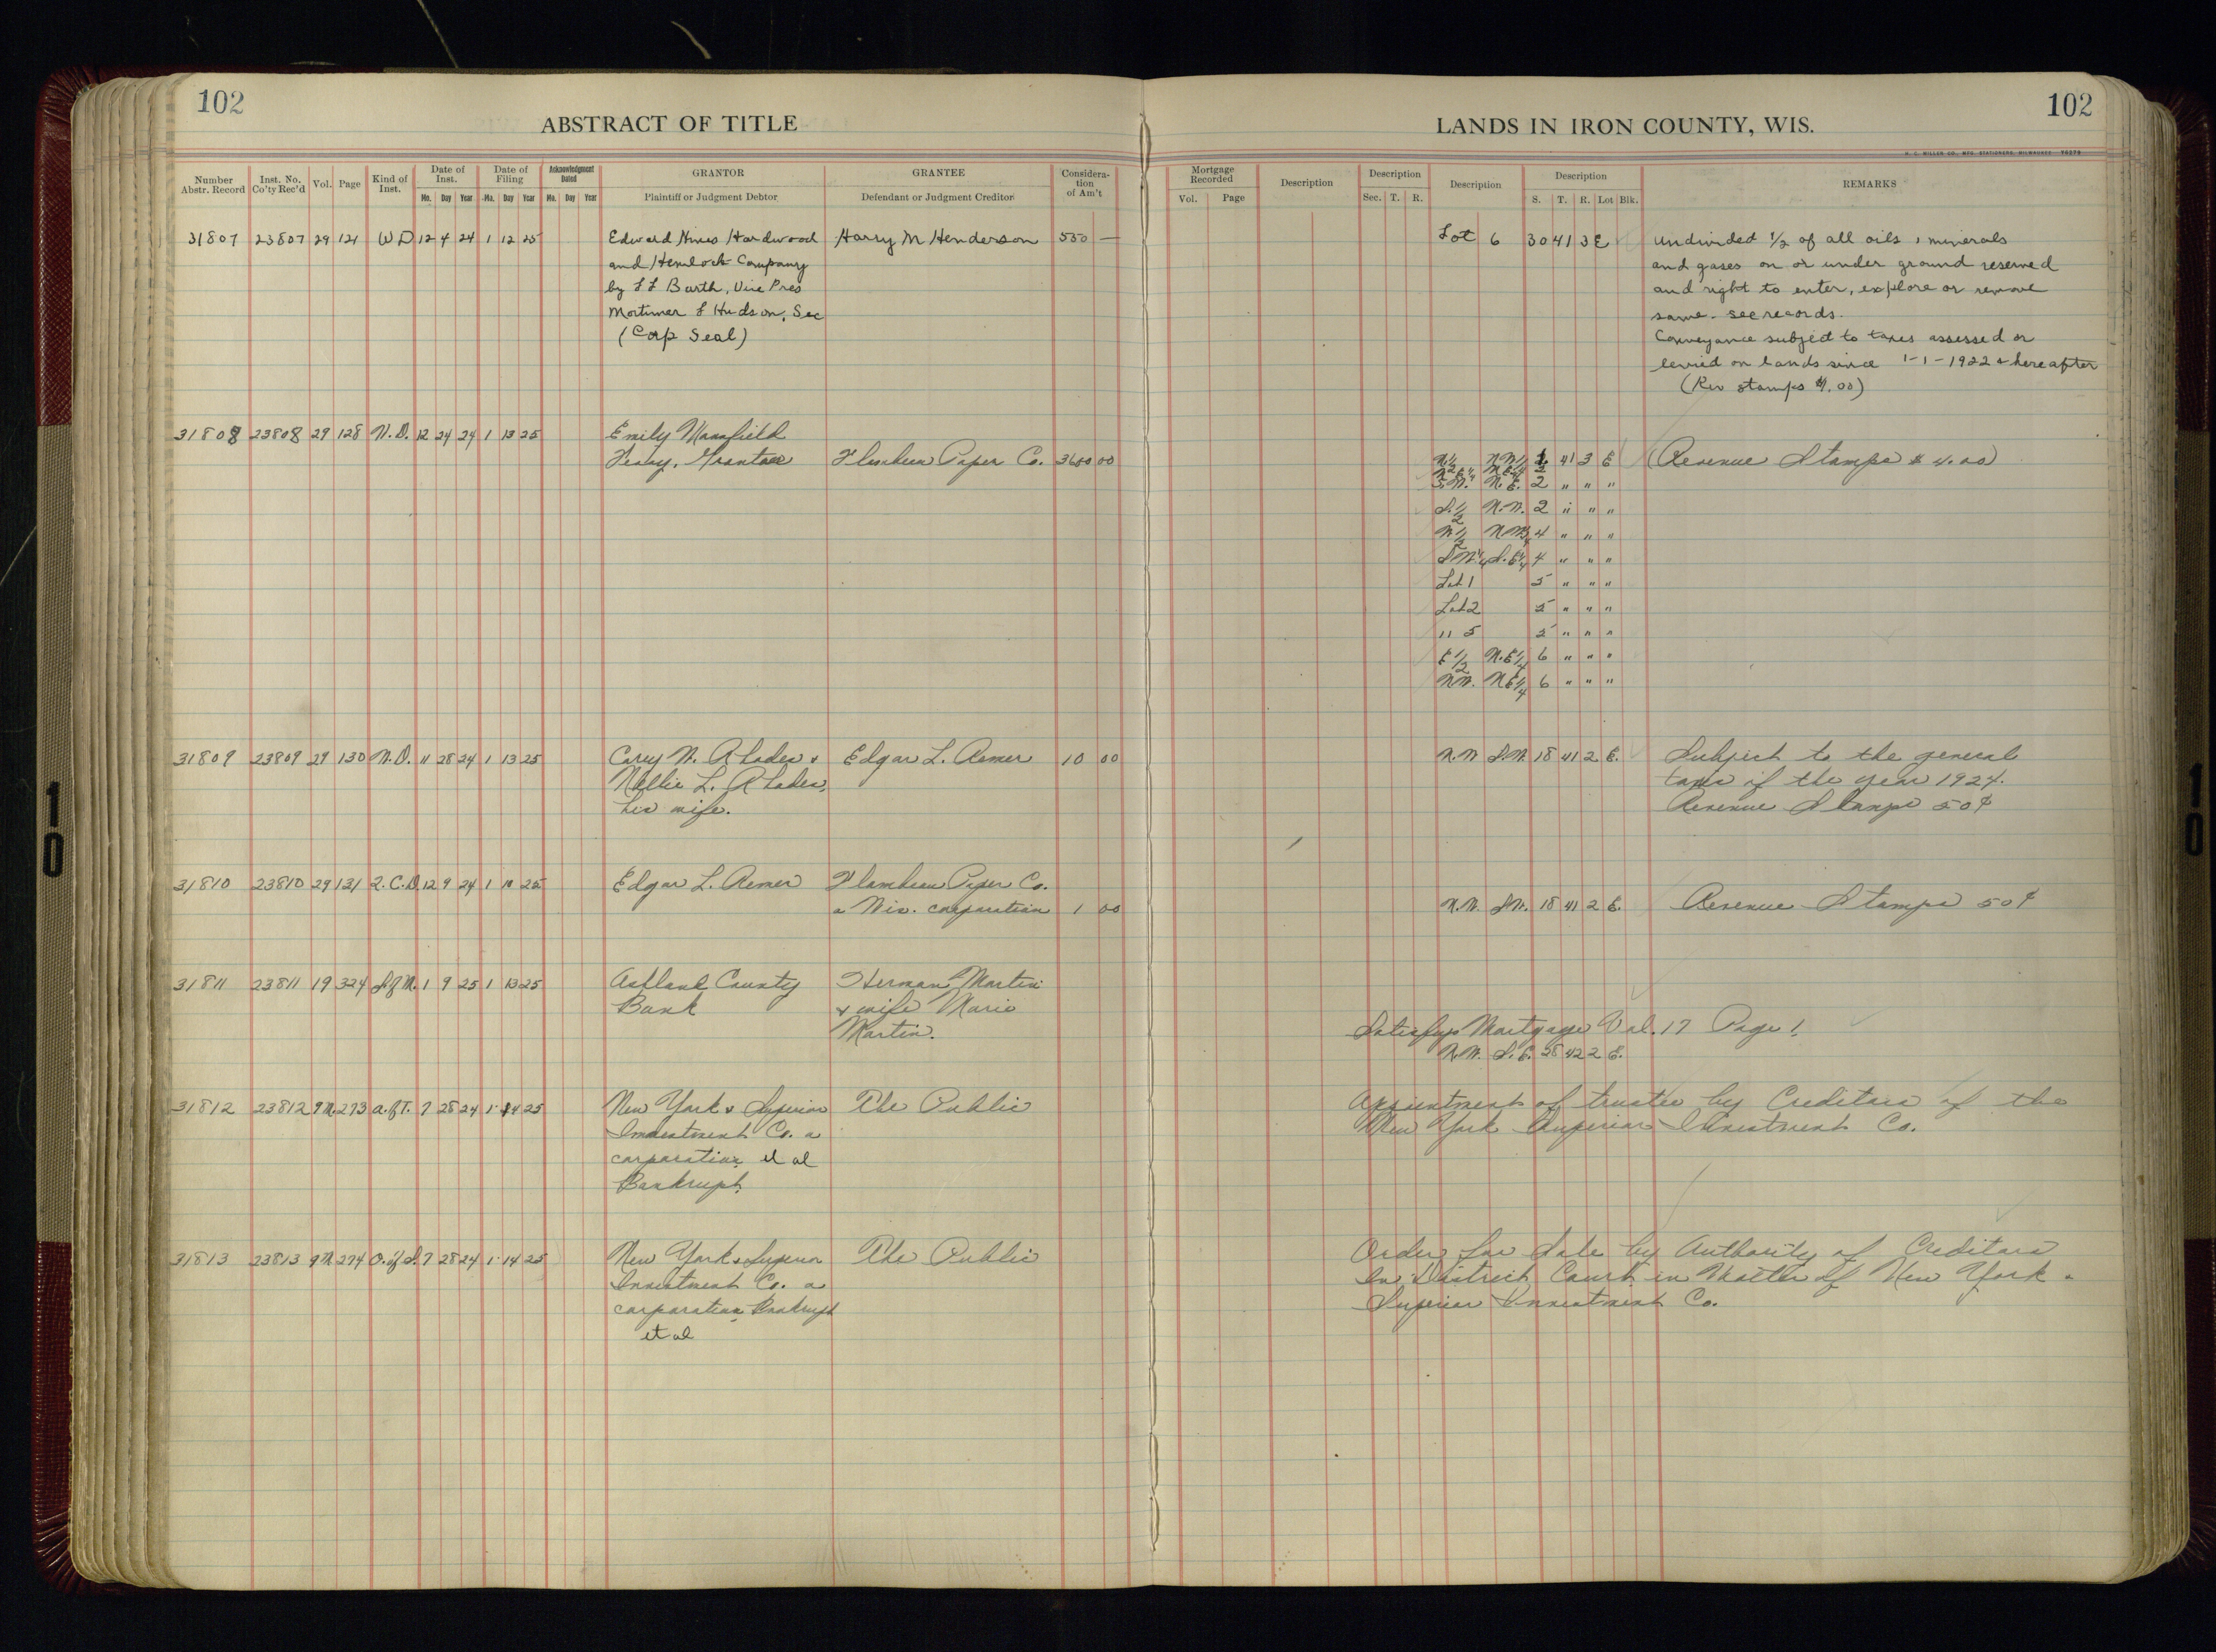 102
102
ABSTRACT OF TITLE
LANDS IN IRON COUNTY, WIS.
H. C. MILLER CO., MFG. STATIONERS, MILWAUKEE
Number Abstr. Record Inst. No. Co'ty Rec'd Vol. Page Kind of Inst. Date of Inst. Mo. Day Year Date of Filing Mo. Day Year Acknowledgment Dated Mo. Day Year GRANTOR Plaintiff or Judgment Debtor GRANTEE Defendant or Judgment Creditor Considera- tion of Am't
Mortgage Recorded Vol. Page Description Description Sec. T. R. Description Description S. T. R. Lot Blk. REMARKS
31807 23807 29 121 WD 12 4 24 1 12 25 Edward Hines Hardwood Harry M Henderson 550 — Lot 6 30 41 3 E undivided 1/2 of all oils, minerals
and Hemlock Company and gases on or under ground reserved
by L L Barth, Vice Pres and right to enter, explore or remove
Mortimer L Hudson, Sec same - see records.
(Corp Seal) Conveyance subject to taxes assessed or
levied on lands since 1-1-1922 & hereafter
(Rev stamps $1.00)
31808 23808 29 128 W.D. 12 24 24 1 13 25 Emily Mansfield
Grantor Flambeau Paper Co. 3600 00 41 3 E (Revenue Stamps $4.00)
S.W. N.E. 2 " " "
S.1/2 N.W. 2 " " "
4 " " "
S.W.1/4 S.E.1/4 4 " " "
Lot 1 5 " " "
Lot 2 5 " " "
" 5 5 " " "
E 1/2 N.E.1/4 6 " " "
N.W. N.E.1/4 6 " " "
31809 23809 29 130 W.D. 11 28 24 1 13 25 Carey W. Rhodes & Edgar L. Remer 10 00 N.W. S.W. 18 41 2 E. Subject to the general
Nellie L. Rhodes, taxes of the year 1924.
his wife. Revenue Stamps 50¢
31810 23810 29 131 Q.C.D. 12 9 24 1 13 25 Edgar L. Remer Flambeau Paper Co.
a Wis. corporation 1 00 N.W. S.W. 18 41 2 E. Revenue Stamps 50¢
31811 23811 19 324 S.of M. 1 9 25 1 13 25 Ashland County Herman Martin
Bank & wife Marie
Martin. Satisfys Mortgage Vol. 17 Page 1.
N.W. S.E. 28 42 2 E.
31812 23812 9M. 273 A.of T. 7 28 24 1 14 25 New York & Superior The Public Appointment of trustee by Creditors of the
Investment Co. a New York Superior Investment Co.
corporation, et al
Bankrupt.
31813 23813 9M 274 O.of S. 7 28 24 1 14 25 New York & Superior The Public Order for Sale by Authority of Creditors
Investment Co. a In District Court in Matter of New York &
corporation Bankrupt Superior Investment Co.
et al